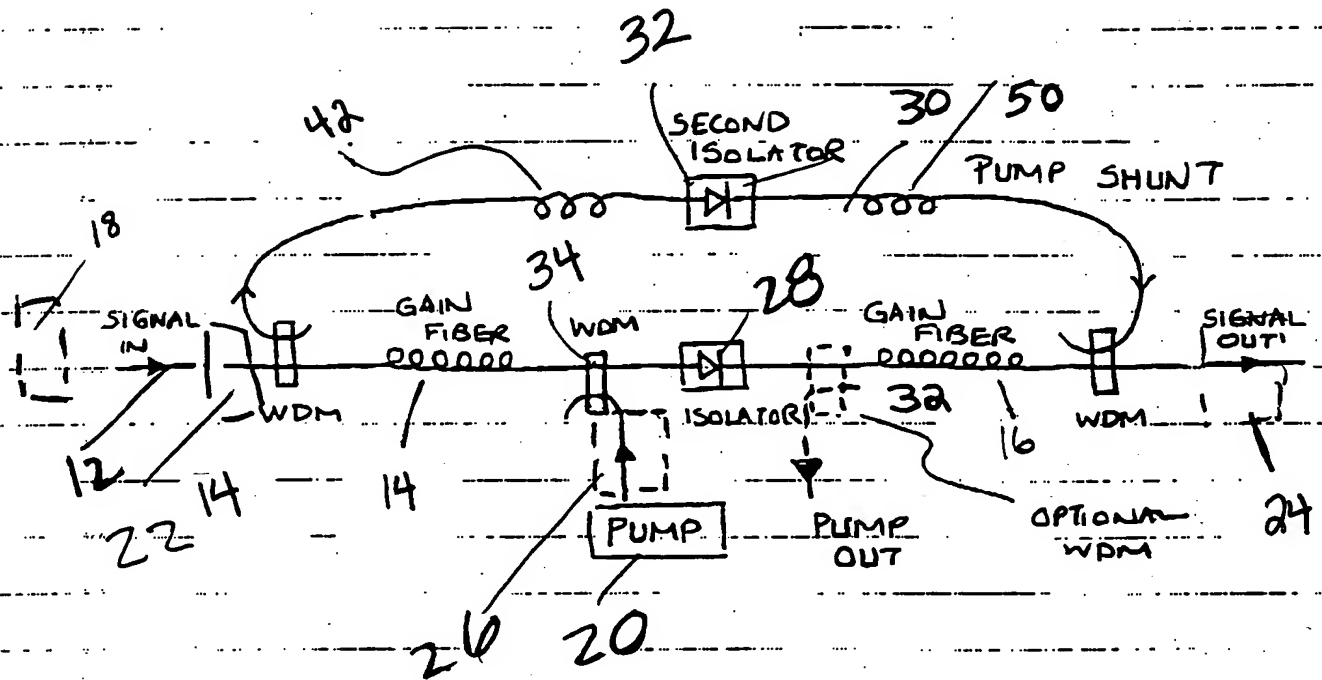 32
42
SECOND
ISOLATOR
30
50
PUMP SHUNT
18
34
28
SIGNAL
IN
GAIN
FIBER
WDM
GAIN
FIBER
SIGNAL
OUT
WDM
ISOLATOR
32
WDM
12
14
14
16
22
PUMP
PUMP
OUT
OPTIONAL
WDM
24
26
20